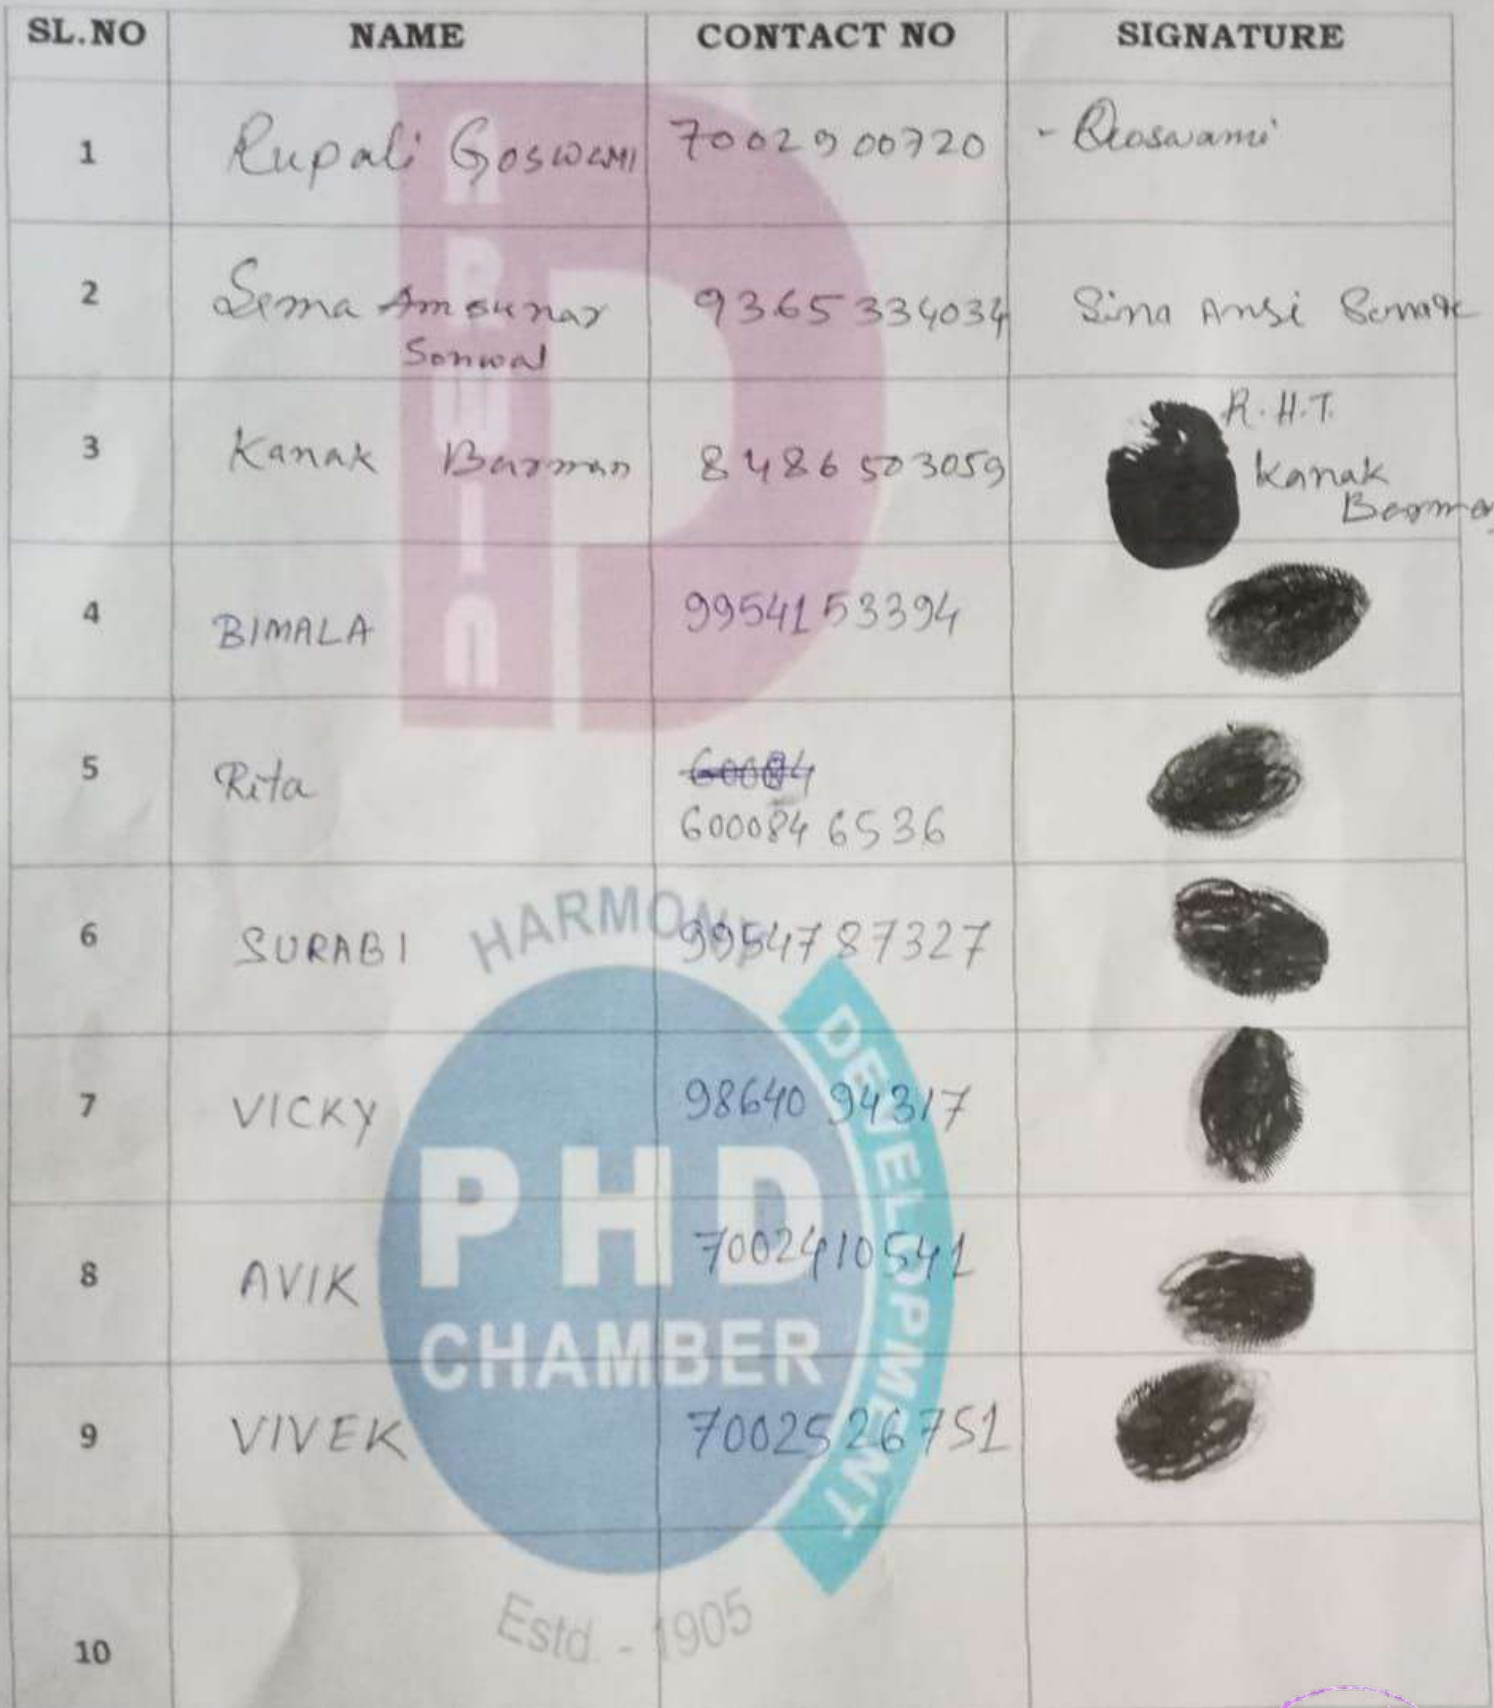 SL.NO NAME CONTACT NO SIGNATURE
1 Rupali Goswami 7002900720 - RGoswami
2 Sema Amsunar 9365334034 Sina Ansi
Sonwal
3 Kanak Barman 8486503059 R.H.T.
Kanak
Barman
4 BIMALA 9954153394
5 Rita 60084
6000846536
6 SURABI 9954787327
7 VICKY 9864094317
8 AVIK 7002410541
9 VIVEK 7002526751
10
DARWIN
HARMONY
PHD
CHAMBER
DEVELOPMENT
Estd. - 1905